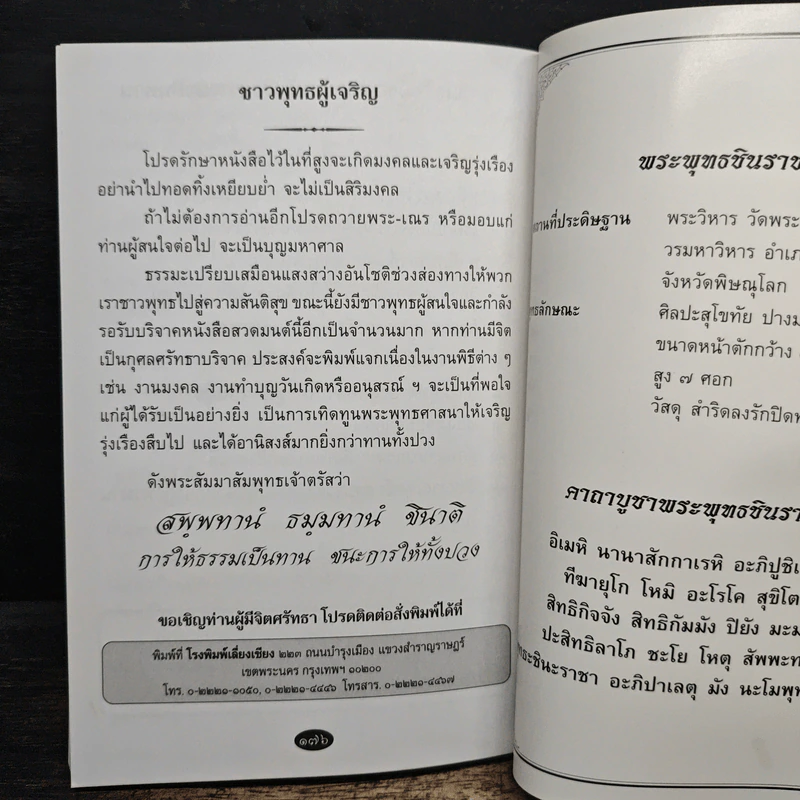 ชาวพุทธผู้เจริญ
โปรดรักษาหนังสือไว้ในที่สูงจะเกิดมงคลและเจริญรุ่งเรือง
อย่านำไปทอดทิ้งเหยียบย่ำ จะไม่เป็นสิริมงคล
ถ้าไม่ต้องการอ่านอีกโปรดถวายพระ-เณร หรือมอบแก่
ท่านผู้สนใจต่อไป จะเป็นบุญมหาศาล
ธรรมะเปรียบเสมือนแสงสว่างอันโชติช่วงส่องทางให้พวก
เราชาวพุทธไปสู่ความสันติสุข ขณะนี้ยังมีชาวพุทธผู้สนใจและกำลัง
รอรับบริจาคหนังสือสวดมนต์นี้อีกเป็นจำนวนมาก หากท่านมีจิต
เป็นกุศลศรัทธาบริจาค ประสงค์จะพิมพ์แจกเนื่องในงานพิธีต่าง ๆ
เช่น งานมงคล งานทำบุญวันเกิดหรืออนุสรณ์ ฯ จะเป็นที่พอใจ
แก่ผู้ได้รับเป็นอย่างยิ่ง เป็นการเทิดทูนพระพุทธศาสนาให้เจริญ
รุ่งเรืองสืบไป และได้อานิสงส์มากยิ่งกว่าทานทั้งปวง
ดังพระสัมมาสัมพุทธเจ้าตรัสว่า
สพฺพทานํ ธมฺมทานํ ชินาติ
การให้ธรรมเป็นทาน ชนะการให้ทั้งปวง
ขอเชิญท่านผู้มีจิตศรัทธา โปรดติดต่อสั่งพิมพ์ได้ที่
พิมพ์ที่ โรงพิมพ์เลี่ยงเซียง ๒๒๓ ถนนบำรุงเมือง แขวงสำราญราษฎร์
เขตพระนคร กรุงเทพฯ ๑๐๒๐๐
โทร. ๐-๒๒๒๑-๑๐๕๐, ๐-๒๒๒๑-๔๔๔๖ โทรสาร. ๐-๒๒๒๑-๔๔๖๗
๑๗๖
พระพุทธชินราช
านที่ประดิษฐาน พระวิหาร วัดพระ
วรมหาวิหาร อำเภ
จังหวัดพิษณุโลก
ธลักษณะ ศิลปะสุโขทัย ปางม
ขนาดหน้าตักกว้าง
สูง ๗ ศอก
วัสดุ สำริดลงรักปิดท
คาถาบูชาพระพุทธชินรา
อิเมหิ นานาสักกาเรหิ อะภิปูชิเ
ทีฆายุโก โหมิ อะโรโค สุขิโต
สิทธิกิจจัง สิทธิกัมมัง ปิยัง มะม
ปะสิทธิลาโภ ชะโย โหตุ สัพพะท
ธะชินะราชา อะภิปาเลตุ มัง นะโมพุท